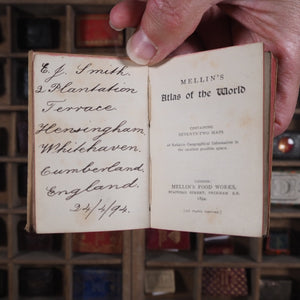 E. J. Smith.
2 Plantation
Terrace
Hensingham,
Whitehaven.
Cumberland.
England.
24/4/94.
MELLIN'S
Atlas of the World
CONTAINING
SEVENTY-TWO MAPS
of Reliable Geographical Information in
the smallest possible space.
LONDON:
MELLIN'S FOOD WORKS,
STAFFORD STREET, PECKHAM, S.E.
[All rights reserved.]